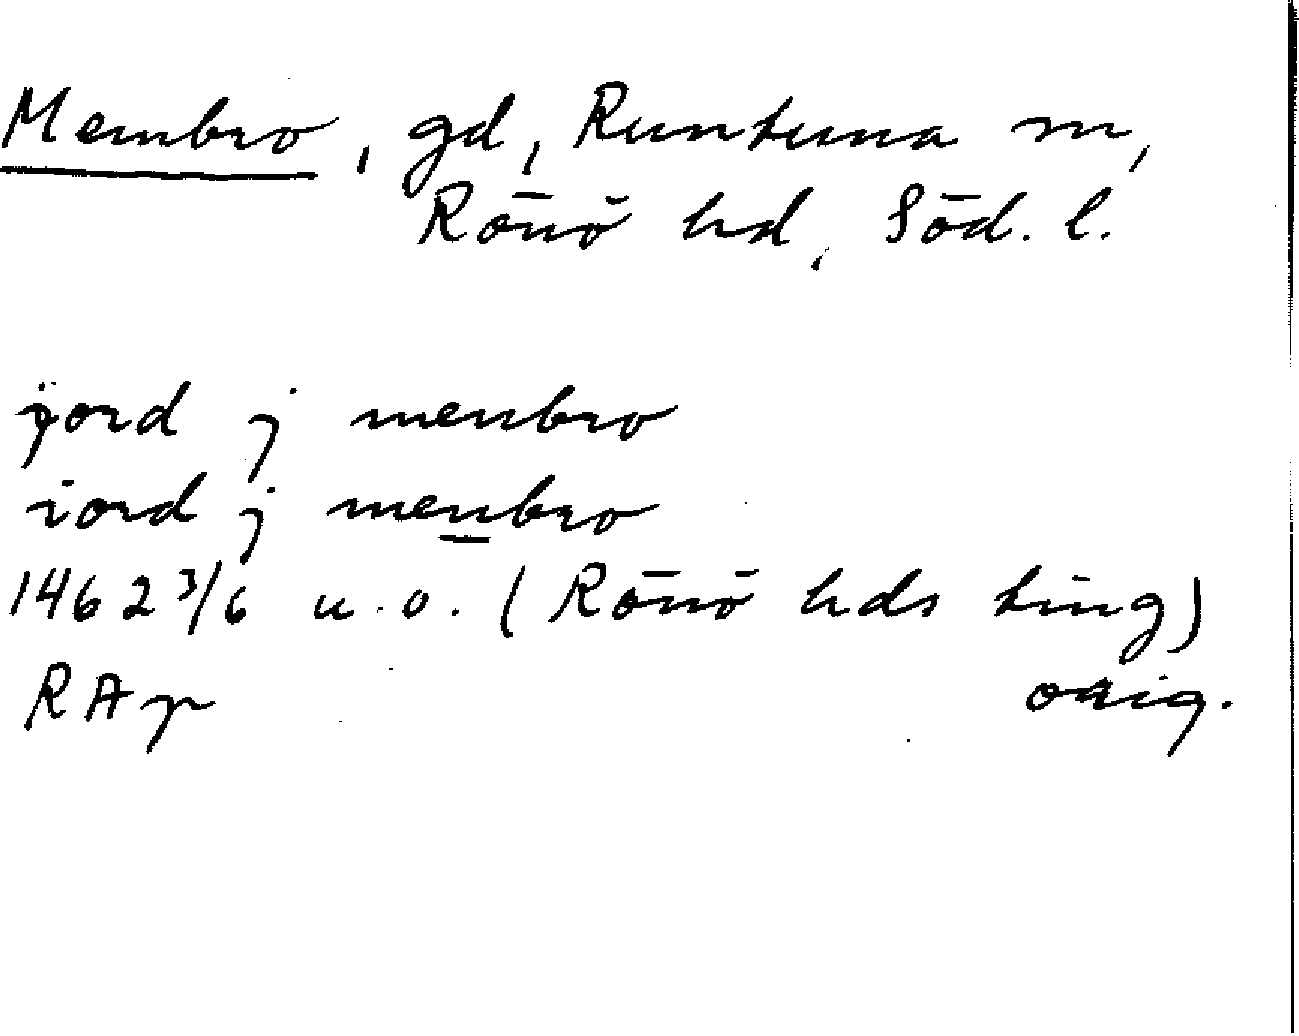 Membro, gd, Runtuna sn,
Rönö hd, Söd. l.
jord j menbro
iord j menbro
1462 3/6 u.o. (Rönö hds ting)
RAp orig.